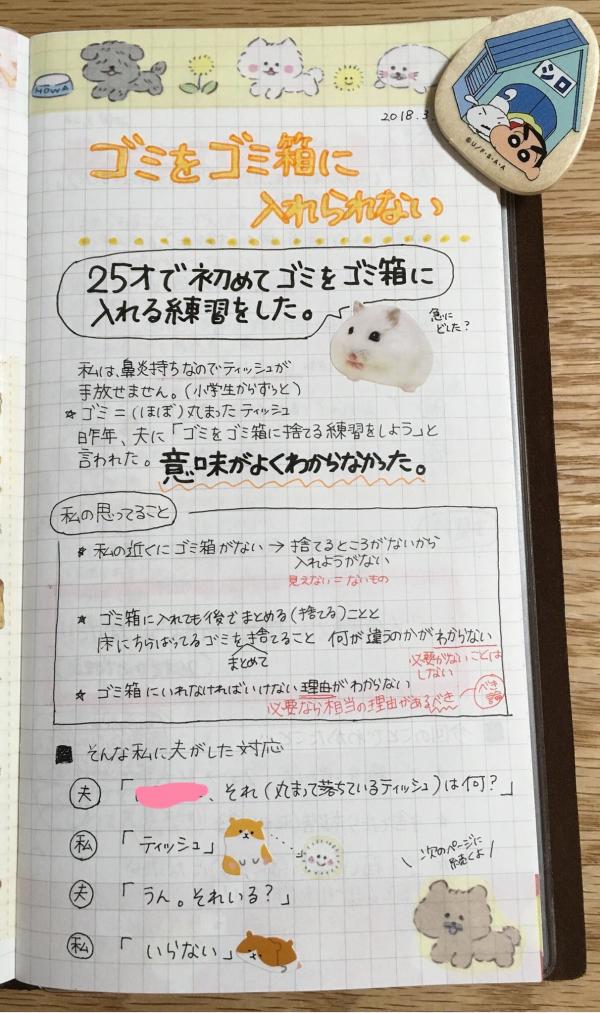 HOWA
2018.3.
シロ
©U/F・S・A・A
ゴミをゴミ箱に
入れられない
25才で初めてゴミをゴミ箱に
入れる練習をした。
急に
どした?
私は、鼻炎持ちなのでティッシュが
手放せません。(小学生からずっと)
☆ ゴミ=(ほぼ)丸まったティッシュ
昨年、夫に「ゴミをゴミ箱に捨てる練習をしよう」と
言われた。意味がよくわからなかった。
私の思ってること
★ 私の近くにゴミ箱がない → 捨てるところがないから
入れようがない
見えない=ないもの
★ ゴミ箱に入れても後でまとめる(捨てる)ことと
床にちらばってるゴミを捨てること 何が違うのかがわからない
まとめて
必要がないことは
しない
★ ゴミ箱にいれなければいけない理由がわからない
必要なら相当の理由があるべき
べき
論
■ そんな私に夫がした対応
夫 「 、それ(丸まって落ちているティッシュ)は何?」
私 「ティッシュ」
夫 「うん。それいる?」
私 「いらない」
\ 次のページに
続くよ /